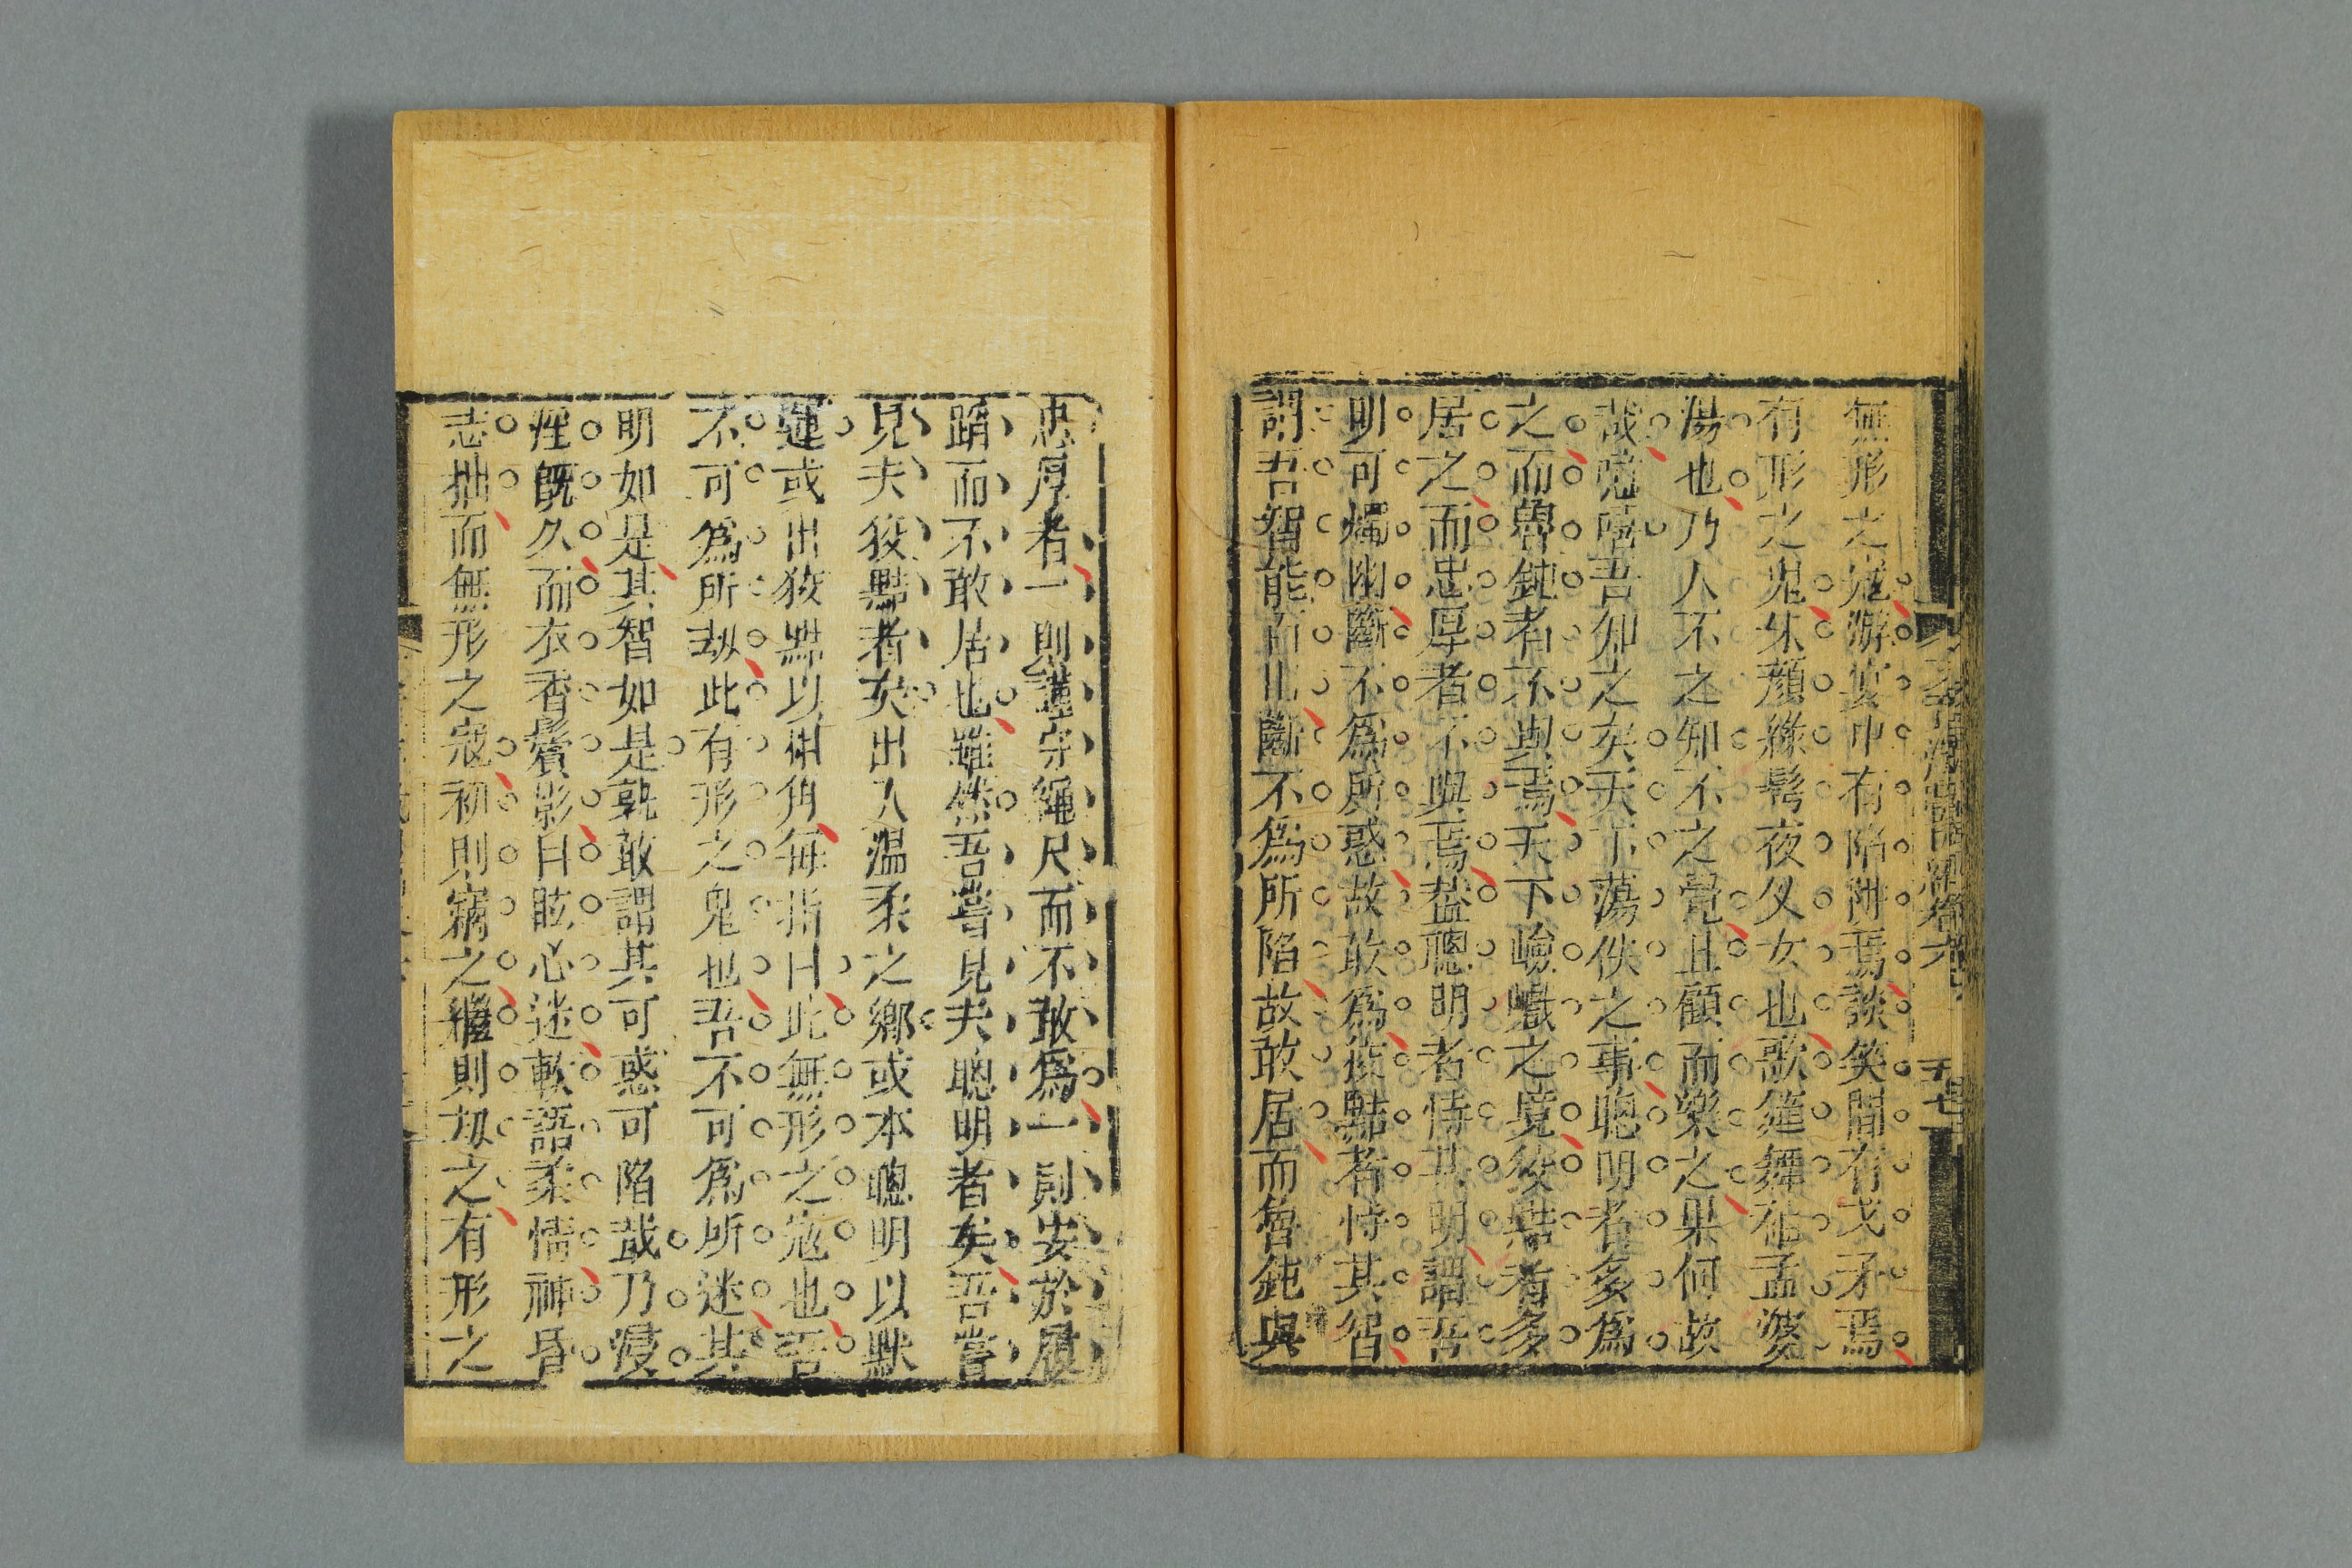 無形之寇游宴中有陷阱焉談笑間有戈矛焉
有形之鬼朱顏綠鬂夜叉女也歌筵舞袖孟婆
湯也乃人不之知不之覺且顧而樂之果何故
哉噫嘻吾知之矣天下蕩佚之事聰明者多爲
之而魯鈍者不與焉天下嶮巇之境狡黠者多
居之而忠厚者不與焉葢聰明者恃其明謂吾
明可燭幽斷不爲所惑故敢爲狡黠者恃其智
謂吾智能而此斷不爲所陷故敢居而魯鈍與
忠厚者一則謹守繩尺而不敢爲一則安於履
蹈而不敢居也雖然吾嘗見夫聰明者矣吾嘗
見夫狡黠者矣出入溫柔之鄉或本聰明以默
運或出狡黠以相角每指曰此無形之寇也吾
不可爲所劫此有形之鬼也吾不可爲所迷其
明如是其智如是孰敢謂其可惑可陷哉乃浸
淫既久而衣香鬢影目眩心迷軟語柔情神昏
志拙而無形之寇初則竊之繼則刼之有形之
卷六